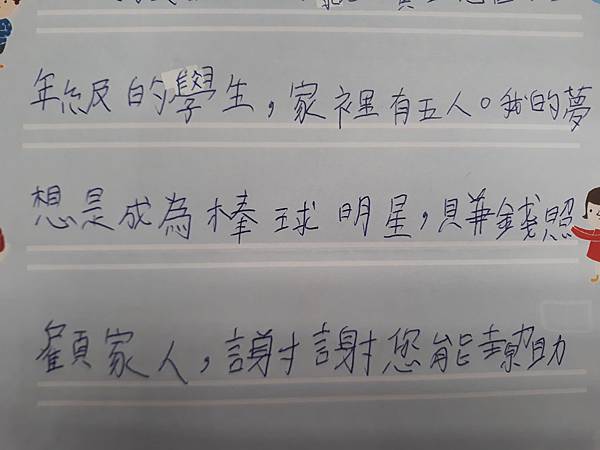 年級的學生，家裡有五人。我的夢
想是成為棒球明星，賺錢照
顧家人，謝謝您能贊助